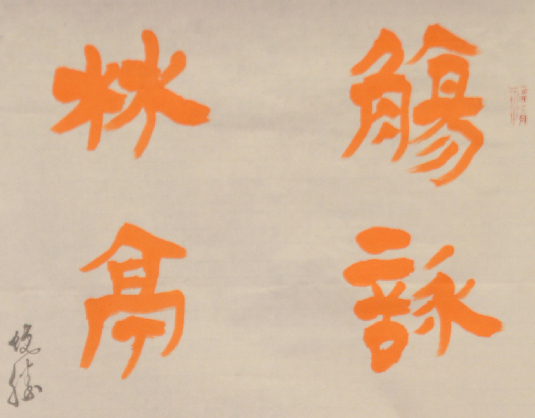 觴詠
林亭